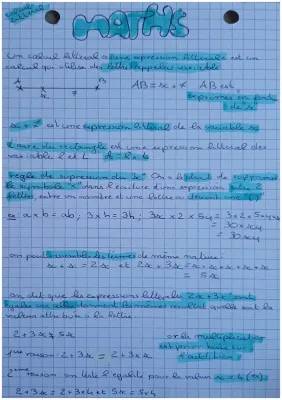 calcul littéral
MATHS
Un calcul littéral ou une expression littérale est un
calcul qui utilise des lettres appelées variable
A B AB = x + 7 AB est
x 7 exprimé en fonction
de "x"
x + 7 est une expression littéral de la variable x
L'aire du rectangle est une expression littéral des
variable l et L A = L x l
règle de supression du "x" On a le droit de supprimer
le symbole "x" dans l'écriture d'une expression entre 2
lettres, entre un nombre et une lettre ou devant une (
ex a x b = ab ; 3 x h = 3h ; 3x x 2 x 5y = 3 x 2 x 5 x y
= 30 x xy
= 30xy
on peut assembler les termes de même nature :
x + x = 2x et 2x + 3x = x + x + x + x + x
= 5x
on dit que les expressions littérales sont
égales les même résultat quelle sont la
valeurs attribuée à la lettre.
2 + 3x ≠ 5x or la multiplication
est prioritaire sur
l'addition
1ère raison : 2 + 3x = 2 + 3 x x
2ème raison on teste l'égalité pour la valeur x = 4